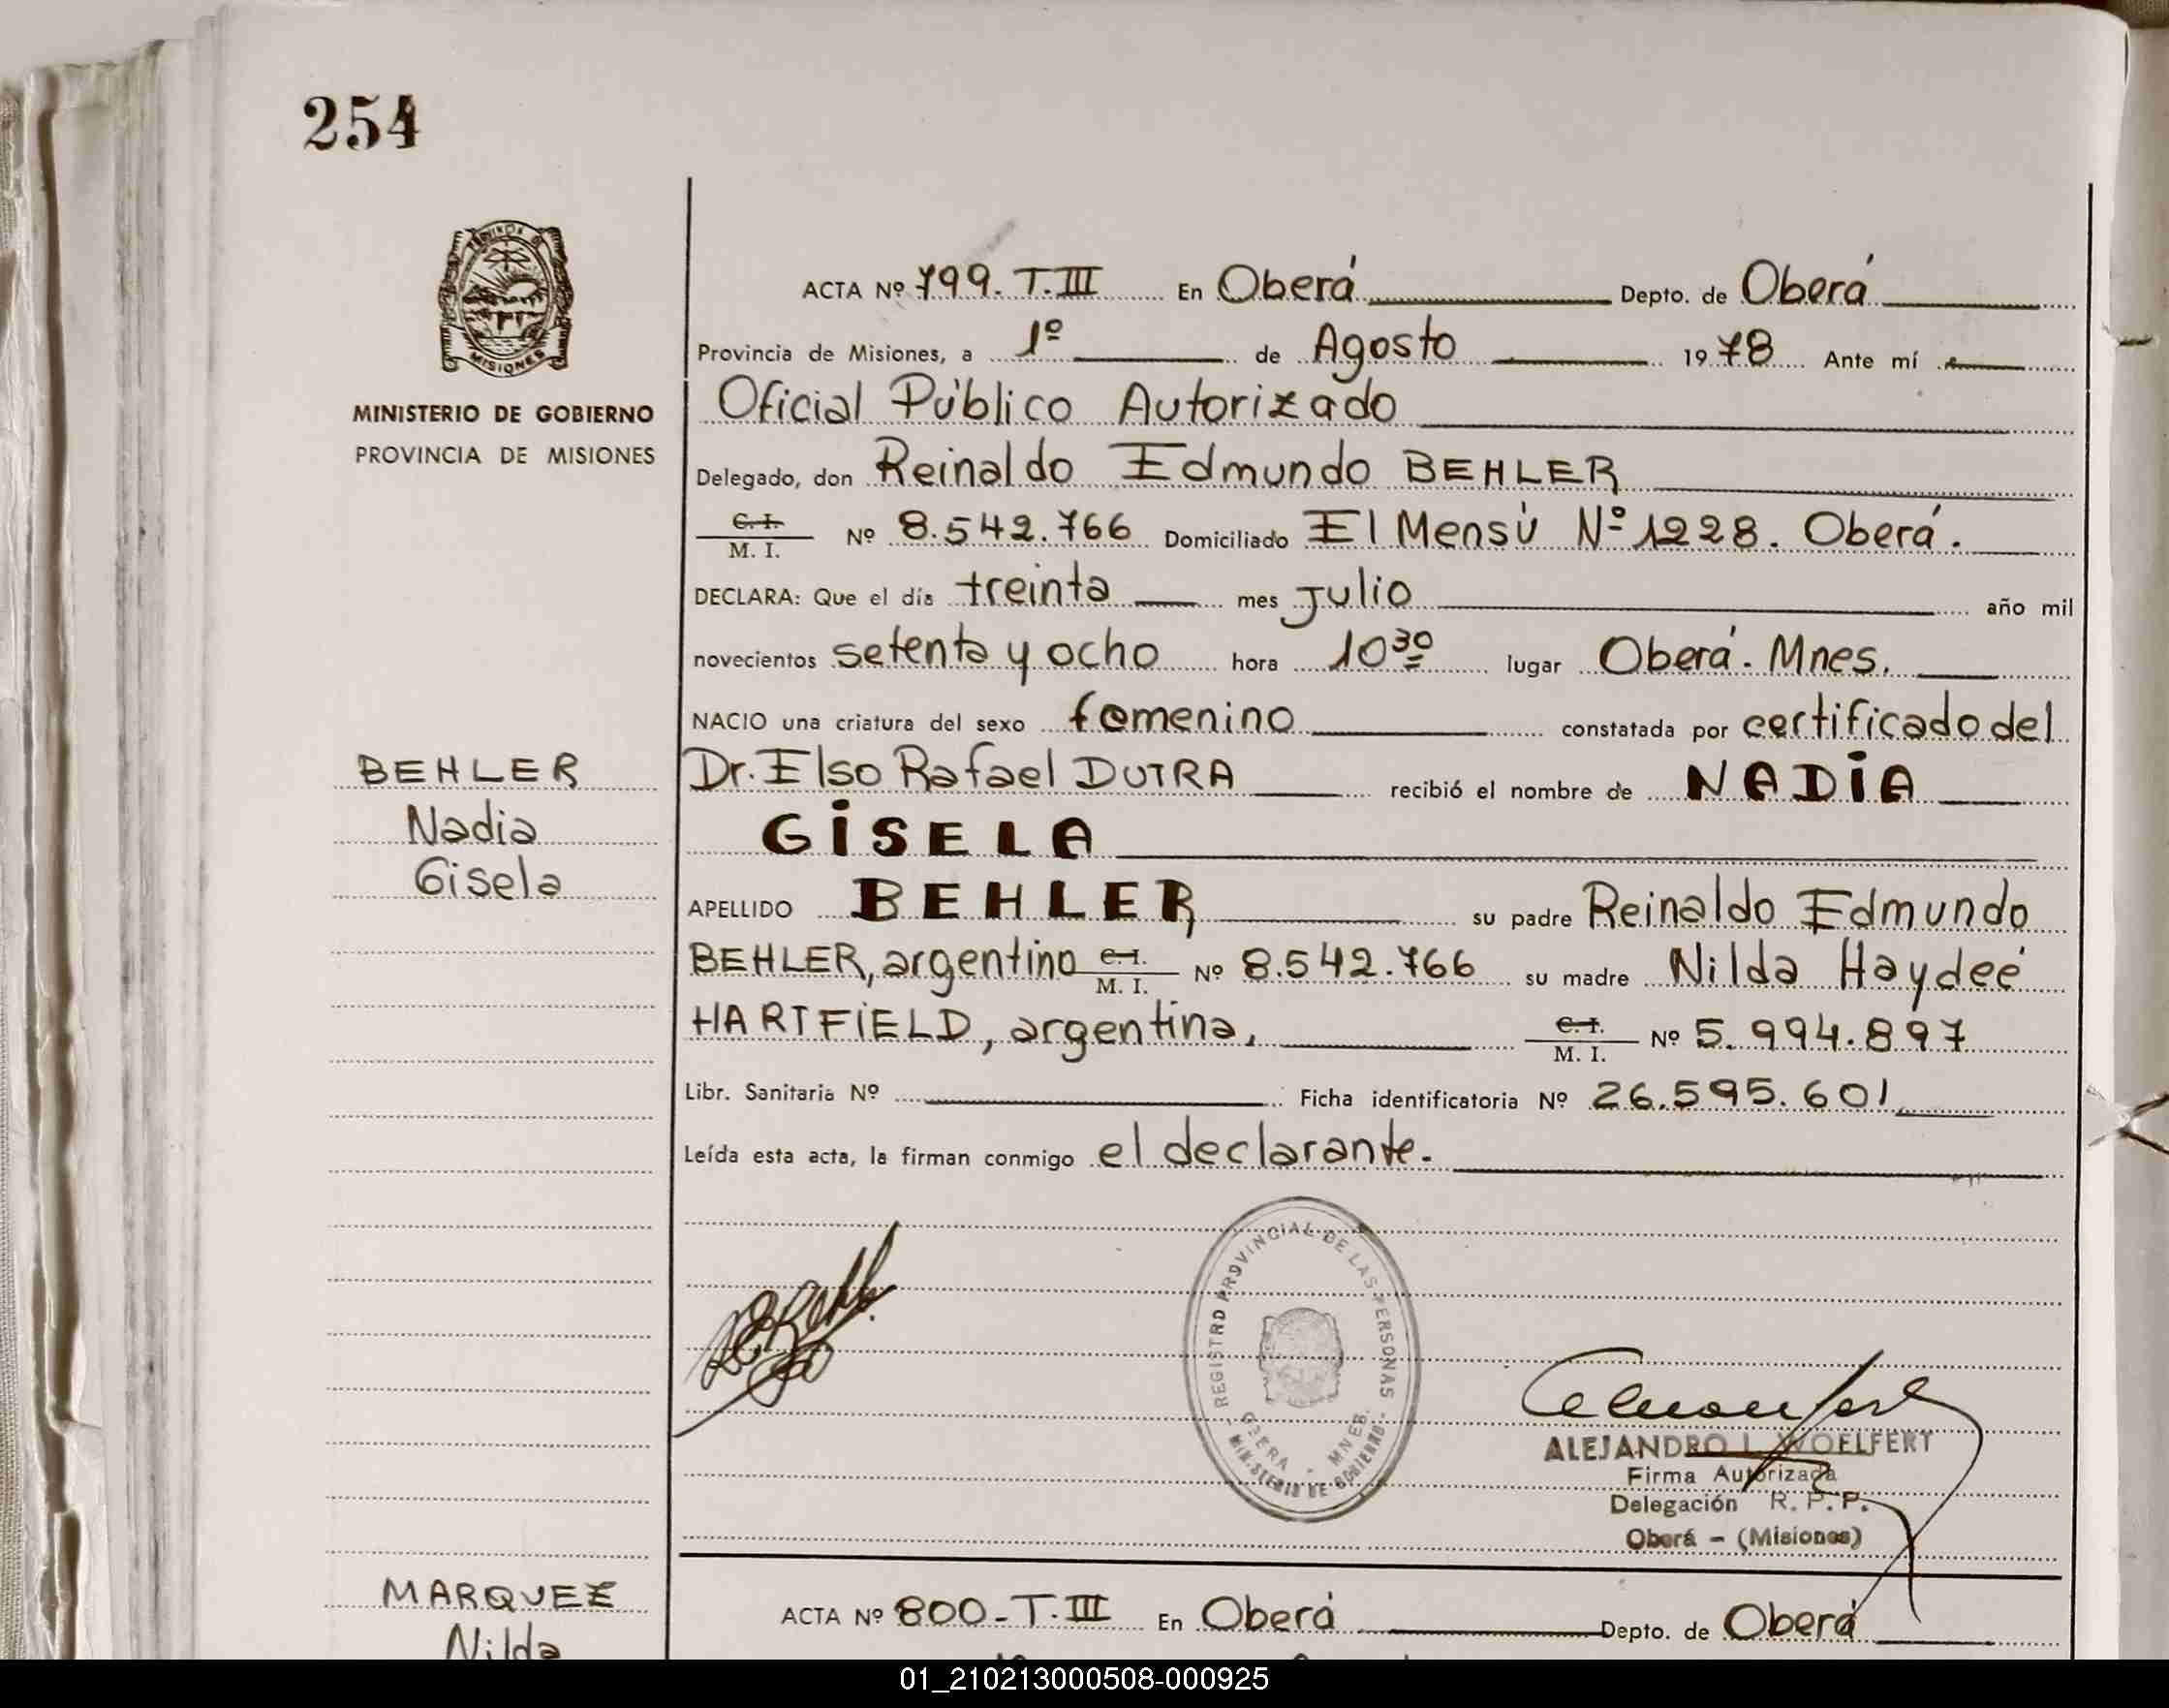 254
PROVINCIA DE
MISIONES
MINISTERIO DE GOBIERNO
PROVINCIA DE MISIONES
ACTA Nº 799. T. III En Oberá Depto. de Oberá
Provincia de Misiones, a 1º de Agosto 1978 Ante mí
Oficial Público Autorizado
Delegado, don Reinaldo Edmundo BEHLER
C. I.
M. I. Nº 8.542.766 Domiciliado El Mensú Nº 1228. Oberá.
DECLARA: Que el día treinta mes Julio año mil
novecientos setenta y ocho hora 10 30 lugar Oberá. Mnes.
NACIO una criatura del sexo femenino constatada por certificado del
BEHLER
Dr. Elso Rafael DUTRA recibió el nombre de NADIA
Nadia
GISELA
Gisela
APELLIDO BEHLER su padre Reinaldo Edmundo
BEHLER, argentino C. I. M. I. Nº 8.542.766 su madre Nilda Haydeé
HARTFIELD, argentina, C. I. M. I. Nº 5.994.897
Libr. Sanitaria Nº Ficha identificatoria Nº 26.595.601
Leída esta acta, la firman conmigo el declarante.
REGISTRO PROVINCIAL DE LAS PERSONAS
OBERA - MNES.
MINISTERIO DE GOBIERNO
ALEJANDRO L. WOELFERT
Firma Autorizada
Delegación R. P. P.
Oberá - (Misiones)
MARQUEZ
Nilda
ACTA Nº 800 - T. III En Oberá Depto. de Oberá
01_210213000508-000925